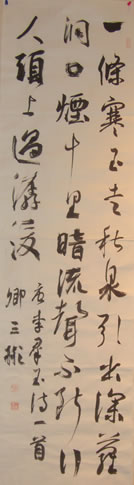 一條寒玉走秋泉引出深蘿
洞口煙十里暗流聲不斷行
人頭上過潺湲 唐李羣玉詩一首
卿三彬